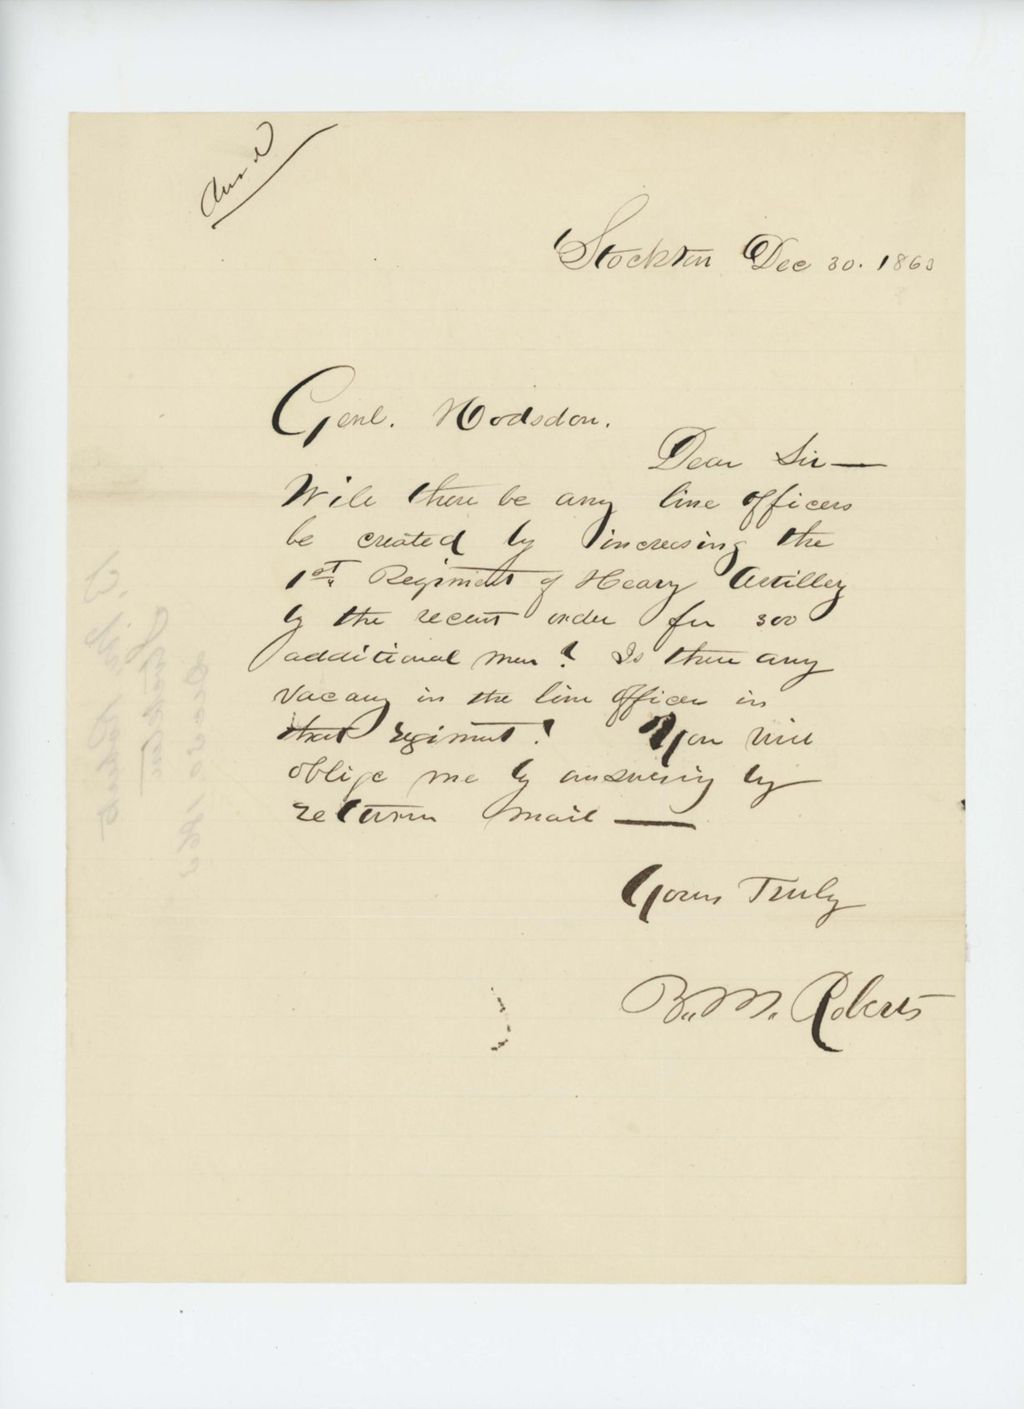 Ans'd
Stockton Dec 30. 1863
Genl. Hodsdon.
Dear Sir—
Will there be any line officers
be created by increasing the
1st Regiment of Heavy Artilley
by the recent order for 300
additional men? Is there any
vacany in the line officer in
that regiment? You will
oblige me by answering by
return mail —
Yours Truly
B. M. Roberts